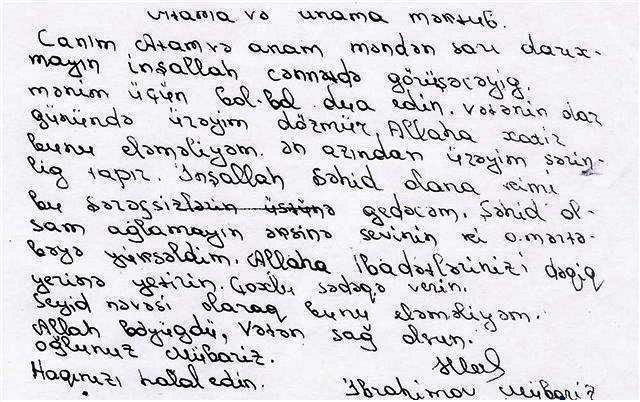 Atama və anama məktub.
Canım Atam və anam məndən sarı darıx-
mayın inşallah cənnətdə görüşəcəyig.
mənim üçün bol-bol dua edin. Vətənin dar
günündə ürəyim dözmür, Allaha xatir
bunu eləməliyəm. ən azından ürəyim sərin-
lig tapır. İnşallah Şəhid olana kimi
bu şərəfsizlərin üstünə gedəcəm. Şəhid ol-
sam ağlamayın əksinə sevinin ki o mərtə-
bəyə yüksəldim. Allaha ibadətlərinizi dəqiq
yerinə yetirin. Çoxlu sədəqə verin.
Seyid nəvəsi olaraq bunu eləməliyəm.
Allah böyügdü, Vətən sağ olsun.
oğlunuz Mübariz.
Haqınızı halal edin.
İbrahimov Mübariz